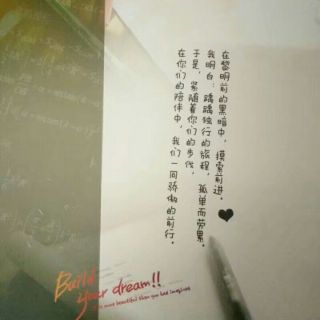 在黎明前的黑暗中，摸索前进。
我明白：踽踽独行的旅程，孤单而劳累。
于是，紧随着你们的步伐，
在你们的陪伴中，我们一同骄傲的前行。
Build
your dream!!
is more beautiful than you had imagined